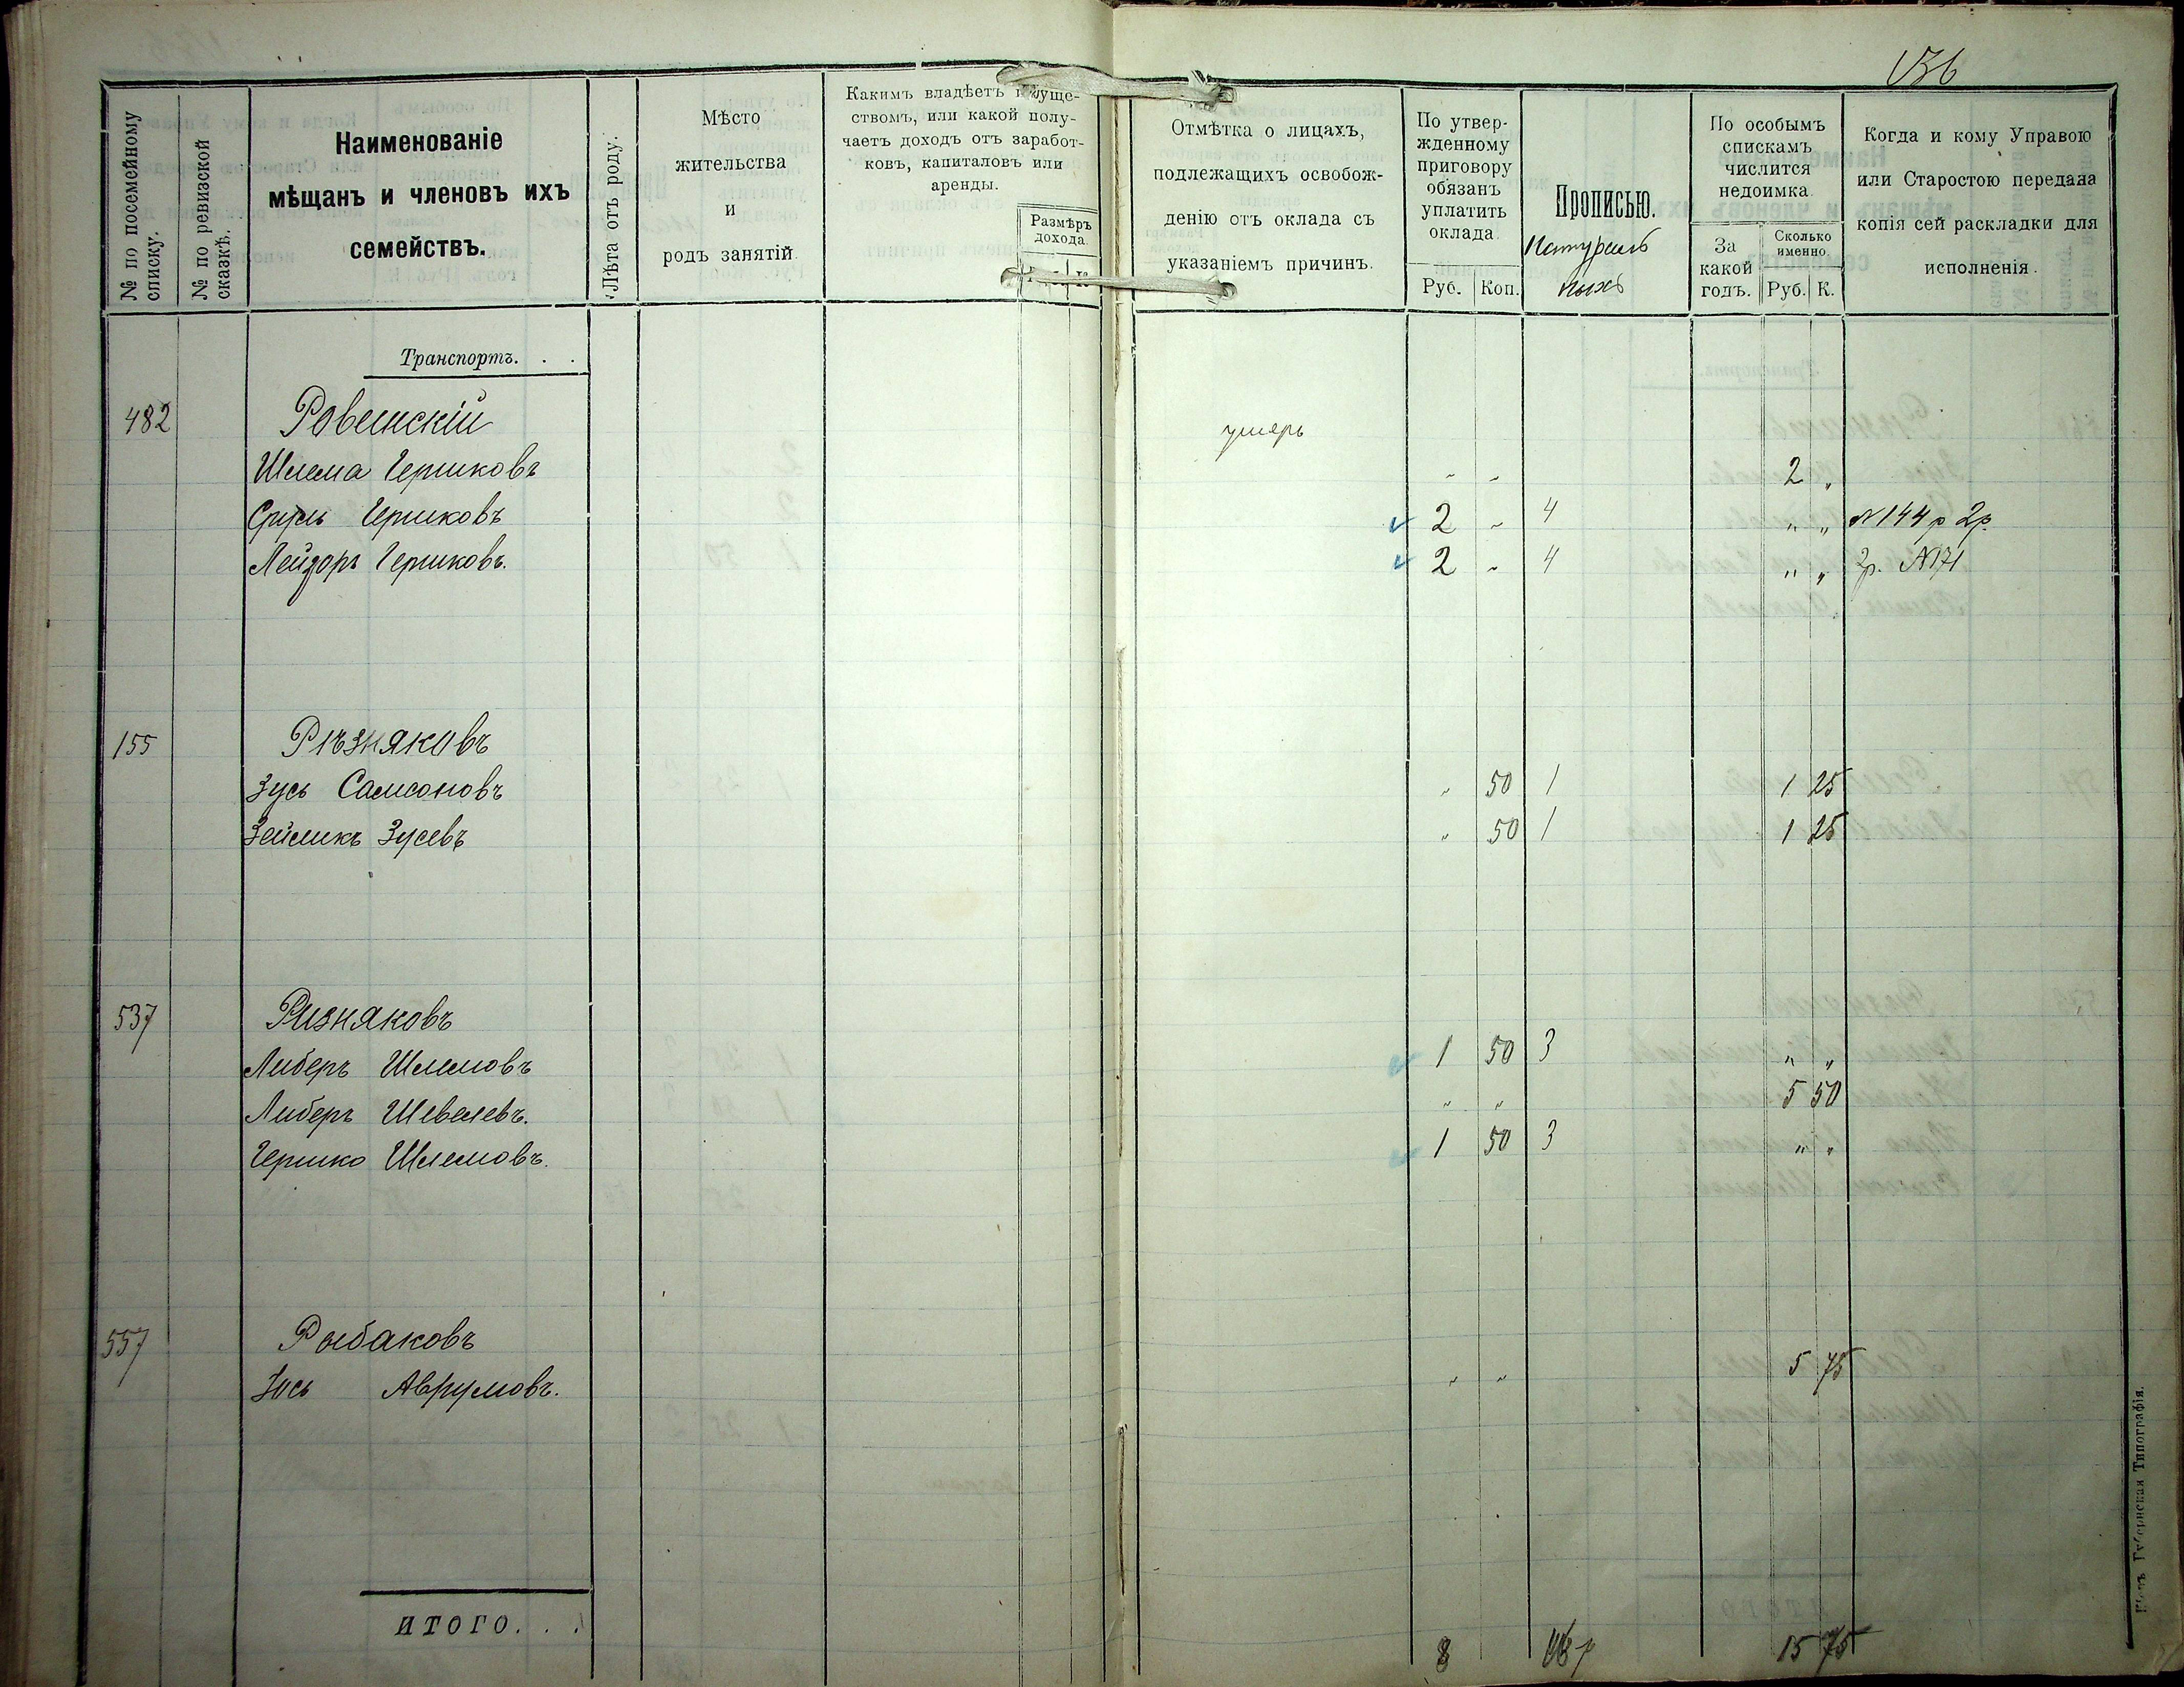 136
№ по посемейному списку.
№ по ревизской сказкѣ.
Наименованіе
мѣщанъ и членовъ ихъ
семействъ.
Лѣта отъ роду.
Мѣсто
жительства
и
родъ занятій.
Какимъ владѣетъ имуще-
ствомъ, или какой полу-
чаетъ доходъ отъ заработ-
ковъ, капиталовъ или
аренды.
Размѣръ
дохода.
Отмѣтка о лицахъ,
подлежащихъ освобож-
денію отъ оклада съ
указаніемъ причинъ.
По утвер-
жденному
приговору
обязанъ
уплатить
оклада
Руб. Коп.
Прописью.
Натураль
ныхъ
По особымъ
спискамъ
числится
недоимка
За
какой
годъ.
Сколько
именно.
Руб. К.
Когда и кому Управою
или Старостою передана
копія сей раскладки для
исполненія.
Транспортъ. . .
482 Ровенскій умеръ
Шлема Гершковъ " " 2 "
Сруль Гершковъ 2 " 4 " " №144 р 2р.
Лейзоръ Гершковъ. 2 " 4 " " 2р. №171
155 Рѣзняковъ
Зусь Самсоновъ " 50 1 1 25
Зейликъ Зусевъ " 50 1 1 25
537 Ризняковъ
Либеръ Шлемовъ 1 50 3 " "
Либеръ Шевелевъ. " " 5 50
Гершко Шлемовъ. 1 50 3 " "
557 Рыбаковъ
Іось Аврумовъ. " " 5 75
итого. . . 8 15 75
Губернская Типографія.